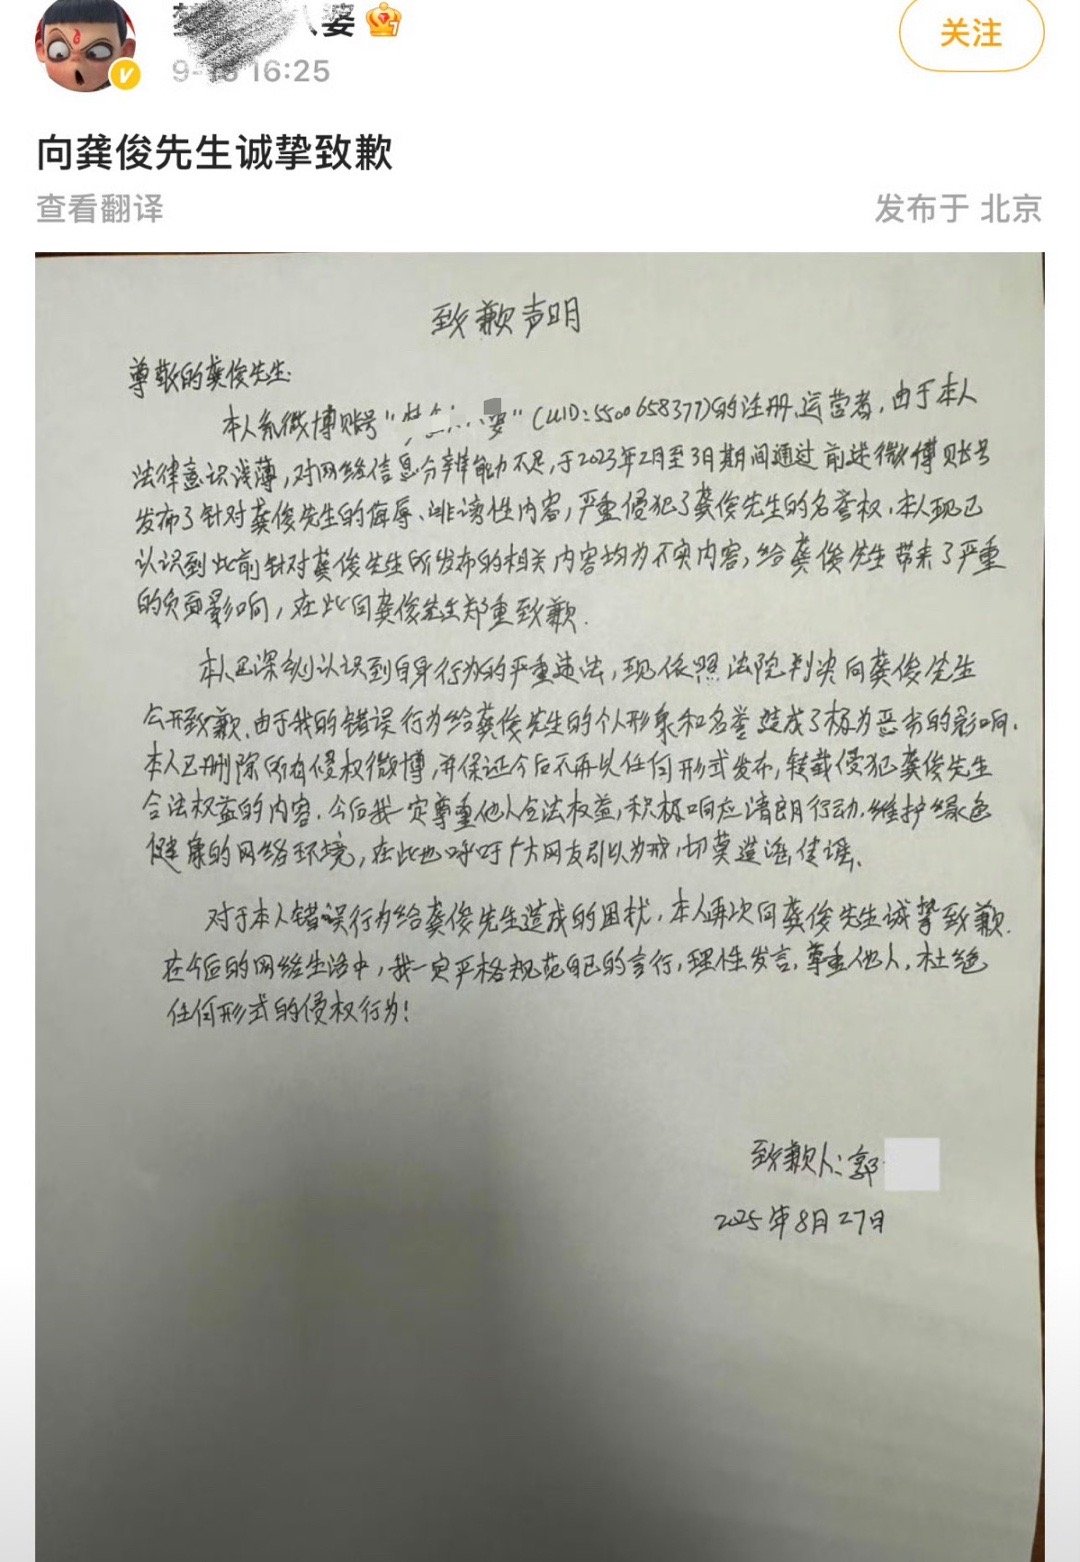 婆
关注
16:25
向龚俊先生诚挚致歉
查看翻译
发布于 北京
致歉声明
尊敬的龚俊先生:
本人系微博账号“婆”(UID:5500658377)的注册、运营者,由于本人
法律意识浅薄,对网络信息分辨能力不足,于2023年2月至3月期间通过前述微博账号
发布了针对龚俊先生的侮辱、诽谤性内容,严重侵犯了龚俊先生的名誉权,本人现已
认识到此前针对龚俊先生所发布的相关内容均为不实内容,给龚俊先生带来了严重
的负面影响,在此向龚俊先生郑重致歉.
本人已深刻认识到自身行为的严重违法,现依照法院判决向龚俊先生
公开致歉.由于我的错误行为给龚俊先生的个人形象和名誉造成了极为恶劣的影响.
本人已删除所有侵权微博,并保证今后不再以任何形式发布,转载侵犯龚俊先生
合法权益的内容.今后我一定尊重他人合法权益,积极响应清朗行动.维护绿色
健康的网络环境,在此也呼吁广大网友引以为戒,切莫造谣、传谣.
对于本人错误行为给龚俊先生造成的困扰,本人再次向龚俊先生诚挚致歉.
在今后的网络生活中,我一定严格规范自己的言行,理性发言,尊重他人,杜绝
任何形式的侵权行为!
致歉人:郭
2025年8月27日